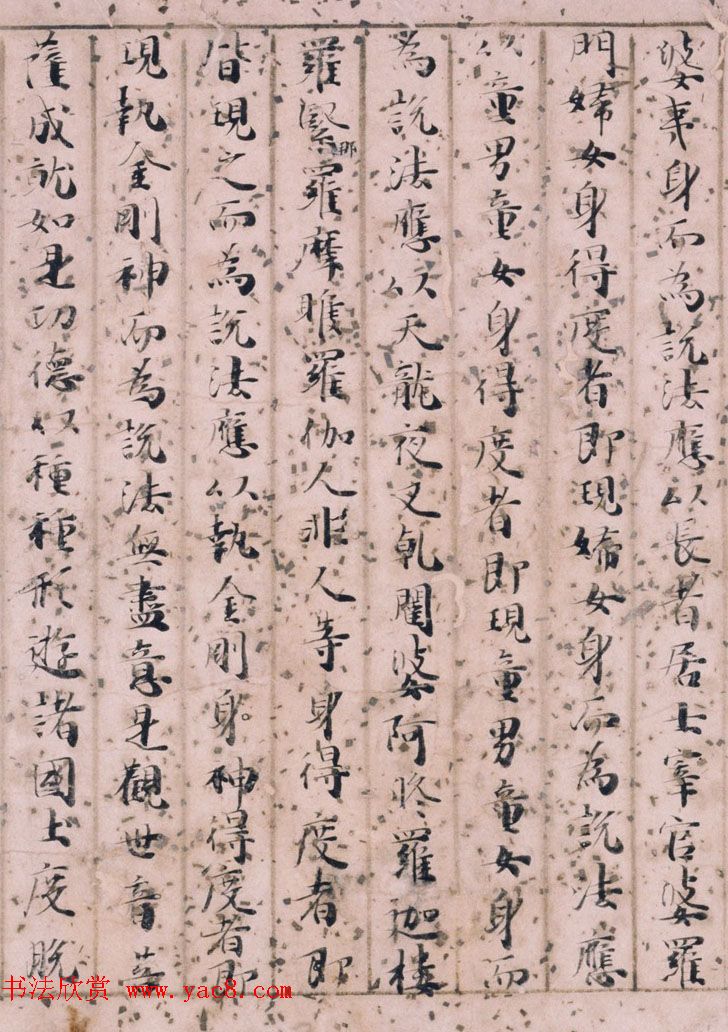 婆夷身而為説法應以長者居士宰官婆羅
門婦女身得度者即現婦女身而為説法應
以童男童女身得度者即現童男童女身而
為説法應以天龍夜叉乹闥婆阿脩羅迦樓
羅緊那羅摩睺羅伽人非人等身得度者即
皆現之而為説法應以執金剛身神得度者即
現執金剛神而為説法無盡意是觀世音菩
薩成就如是功德以種種形遊諸國土度脫
书法欣赏 www.yac8.com